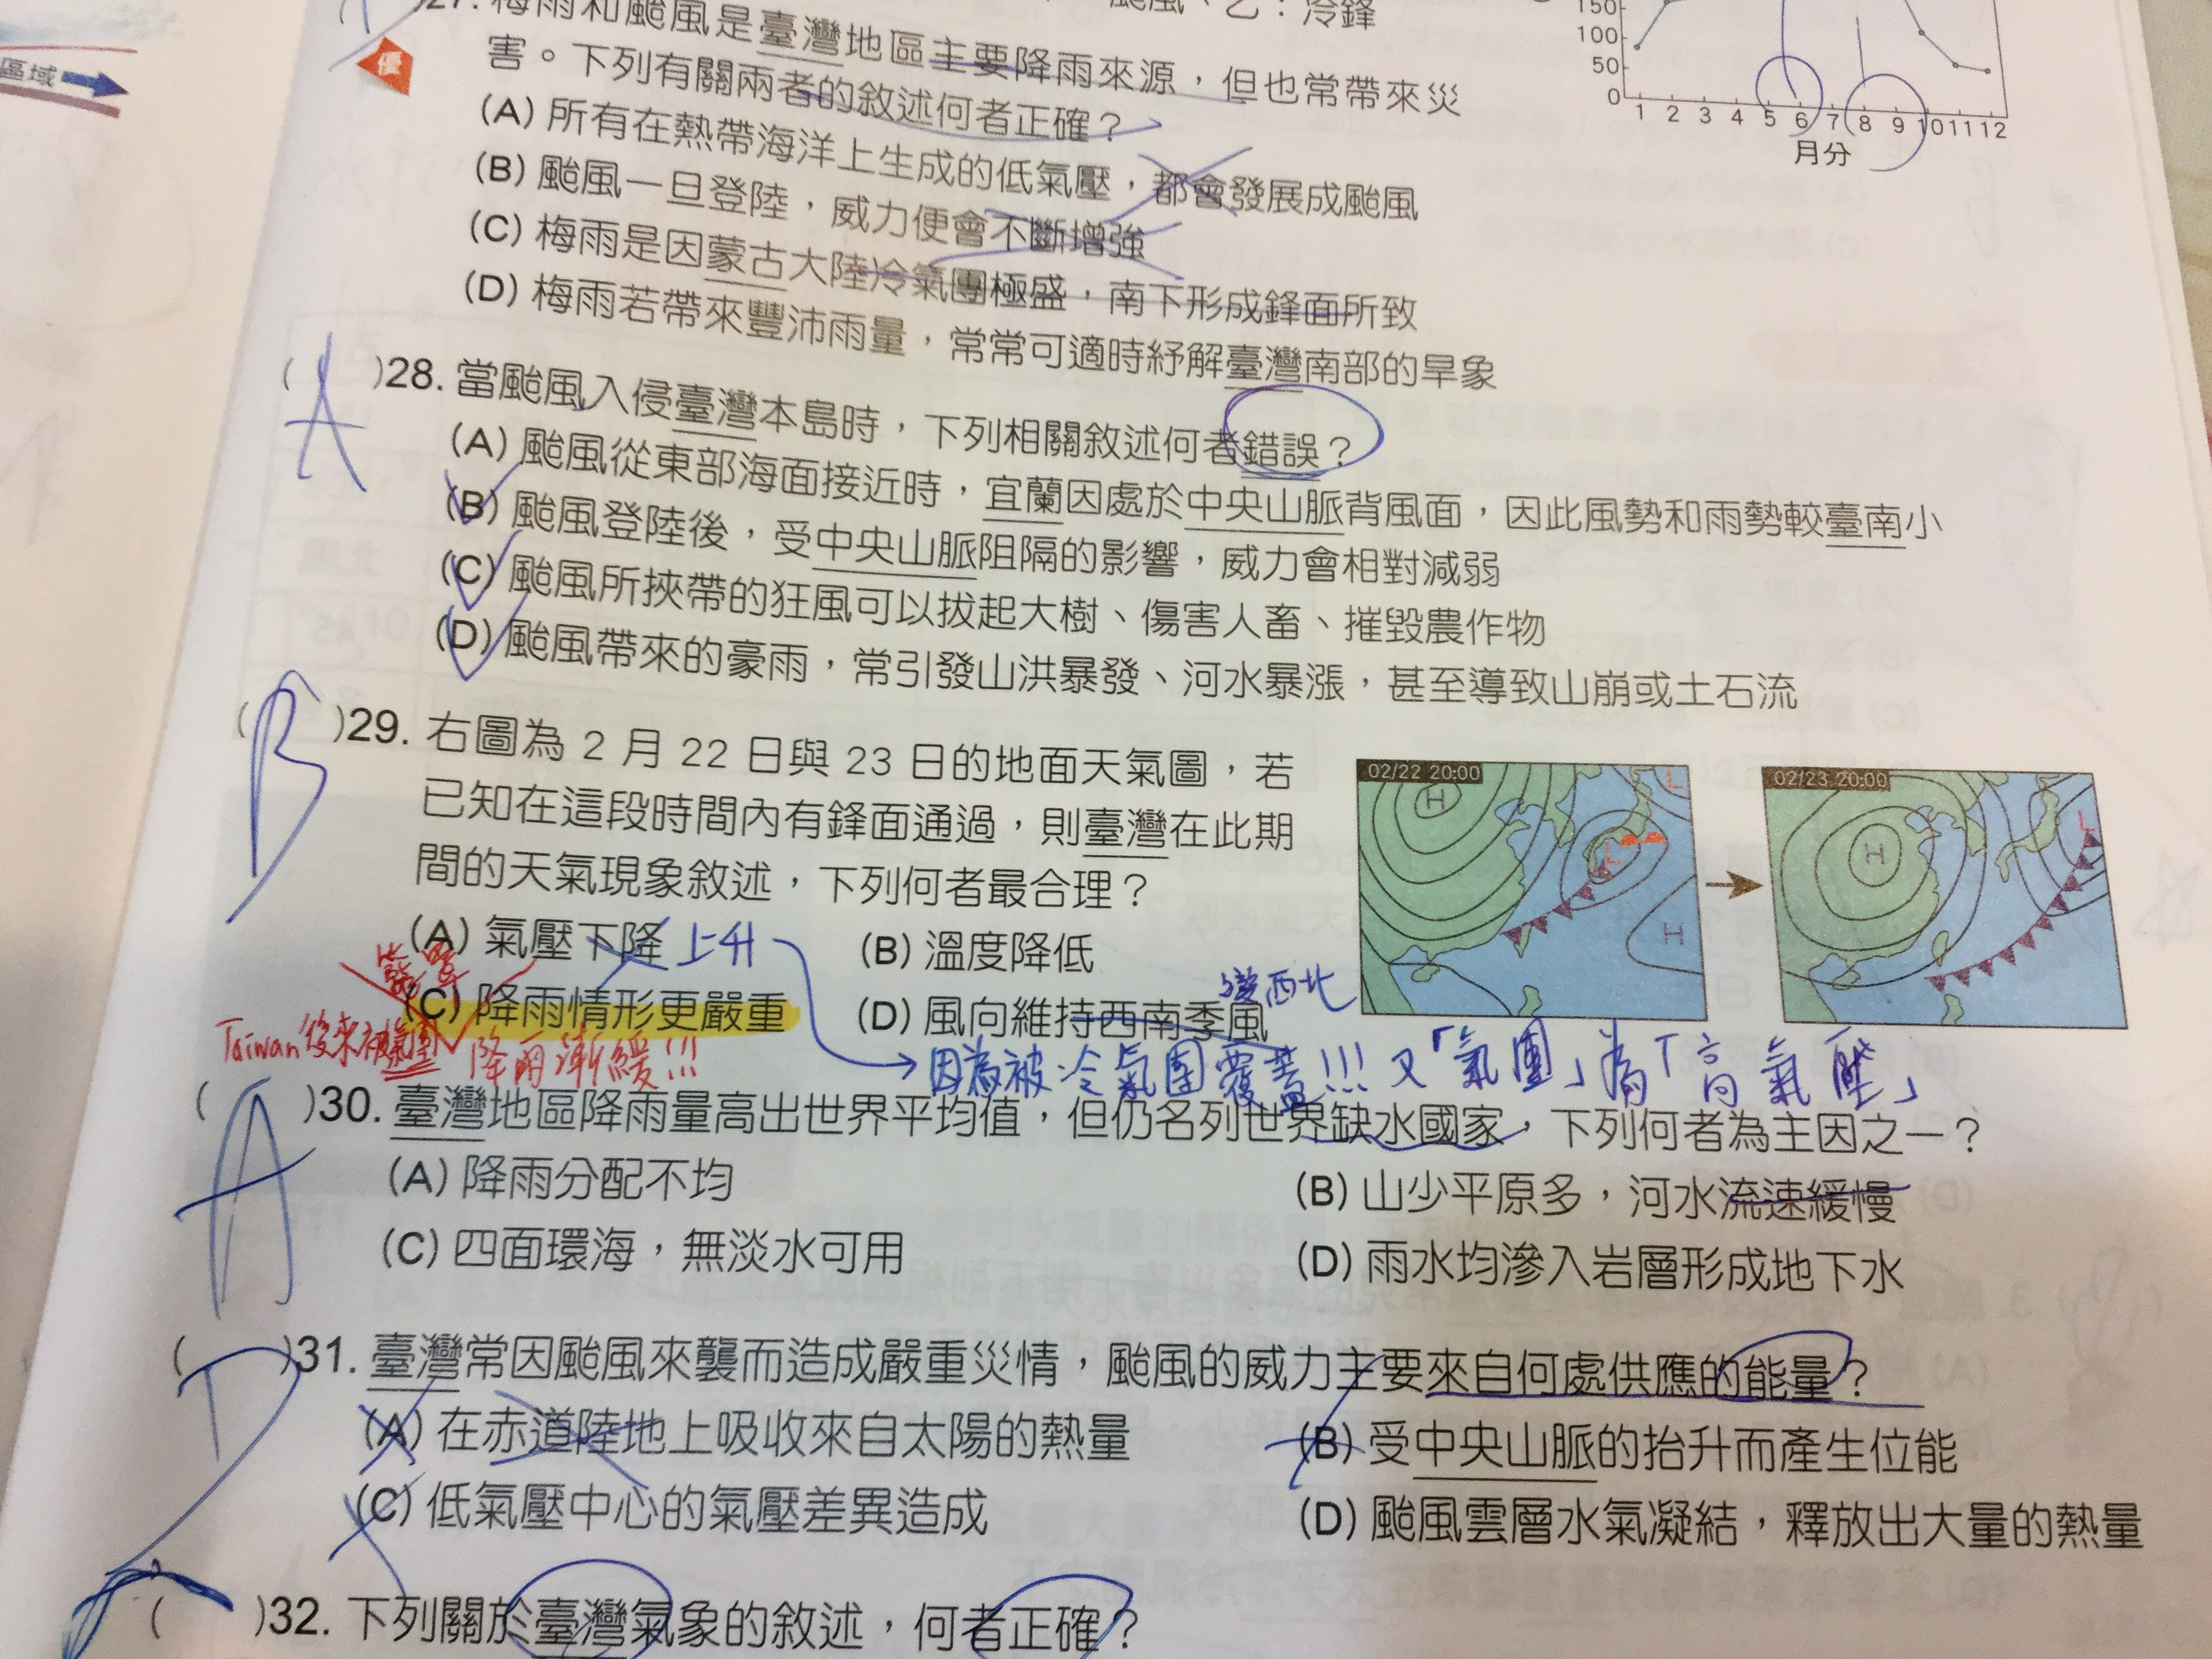 區域
27. 梅雨和颱風是臺灣地區主要降雨來源，但也常帶來災
颱風、乙：冷鋒
害。下列有關兩者的敘述何者正確？
優
(A) 所有在熱帶海洋上生成的低氣壓，都會發展成颱風
(B) 颱風一旦登陸，威力便會不斷增強
(C) 梅雨是因蒙古大陸冷氣團極盛，南下形成鋒面所致
(D) 梅雨若帶來豐沛雨量，常常可適時紓解臺灣南部的旱象
150
100
50
0
1 2 3 4 5 6 7 8 9 10 11 12
月分
( A )28. 當颱風入侵臺灣本島時，下列相關敘述何者錯誤？
(A) 颱風從東部海面接近時，宜蘭因處於中央山脈背風面，因此風勢和雨勢較臺南小
(B) 颱風登陸後，受中央山脈阻隔的影響，威力會相對減弱
(C) 颱風所挾帶的狂風可以拔起大樹、傷害人畜、摧毀農作物
(D) 颱風帶來的豪雨，常引發山洪暴發、河水暴漲，甚至導致山崩或土石流
( B )29. 右圖為 2 月 22 日與 23 日的地面天氣圖，若
已知在這段時間內有鋒面通過，則臺灣在此期
間的天氣現象敘述，下列何者最合理？
02/22 20:00
H
L
L
H
02/23 20:00
H
L
(A) 氣壓下降 上升 (B) 溫度降低
(C) 降雨情形更嚴重 (D) 風向維持西南季風 變西北
Taiwan 後來被氣團
降雨漸緩!!!
因為被冷氣團覆蓋!!! 又「氣團」為「高氣壓」
( A )30. 臺灣地區降雨量高出世界平均值，但仍名列世界缺水國家，下列何者為主因之一？
(A) 降雨分配不均 (B) 山少平原多，河水流速緩慢
(C) 四面環海，無淡水可用 (D) 雨水均滲入岩層形成地下水
( D )31. 臺灣常因颱風來襲而造成嚴重災情，颱風的威力主要來自何處供應的能量？
(A) 在赤道陸地上吸收來自太陽的熱量 (B) 受中央山脈的抬升而產生位能
(C) 低氣壓中心的氣壓差異造成 (D) 颱風雲層水氣凝結，釋放出大量的熱量
( )32. 下列關於臺灣氣象的敘述，何者正確？